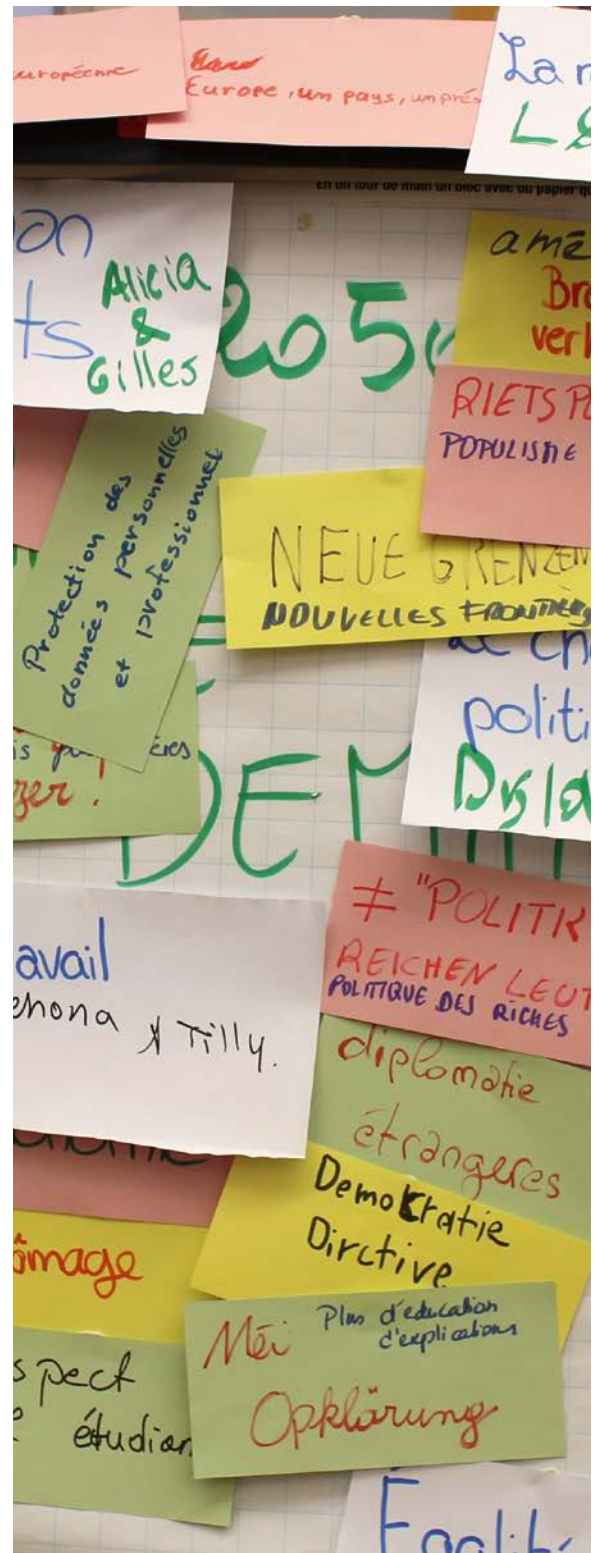 européenne
Europe, un pays, un prés
La r
En un tour de main un bloc avec ou papier qu
on
ts
Alicia
&
Gilles
205
amé
Br
verl
RIETSPO
POPULISME
Protection des
données personnelles
et professionnel
NEUE GRENZEN
NOUVELLES FRONTIÈRES
politi
Disla
is
ères
zer!
DEM
≠ "POLITIK
REICHEN LEUT
POLITIQUE DES RICHES
avail
ehona & Tilly.
diplomatie
étrangeres
Demokratie
Dirctive
ômage
Méi
Plus d'education
d'explications
Opklärung
spect
étudian
Égalité